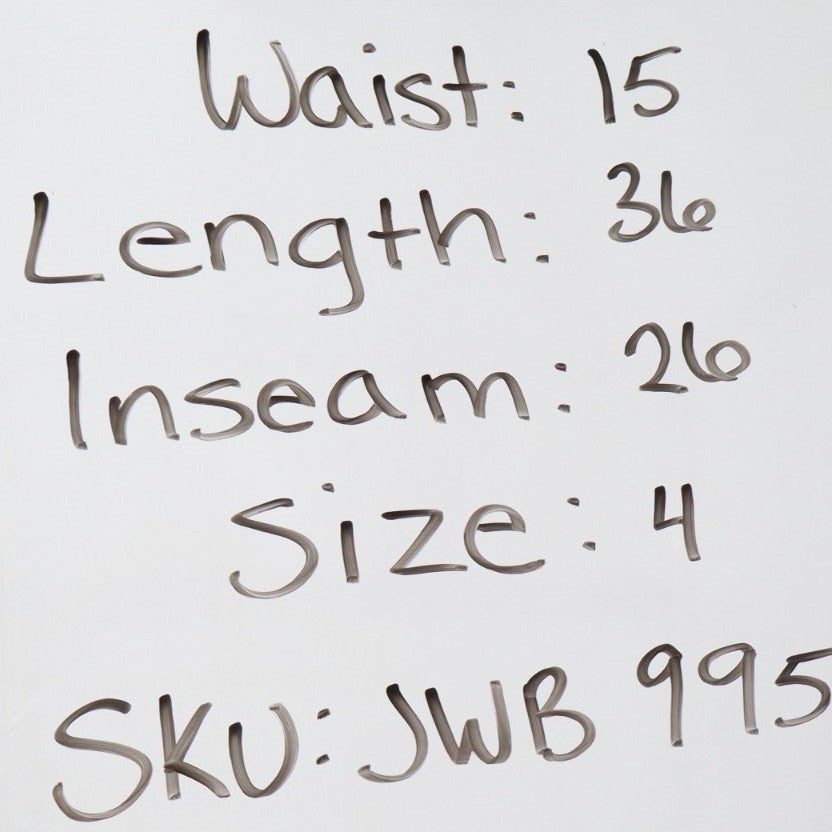 Waist: 15
Length: 36
Inseam: 26
Size: 4
SKU: JWB 995